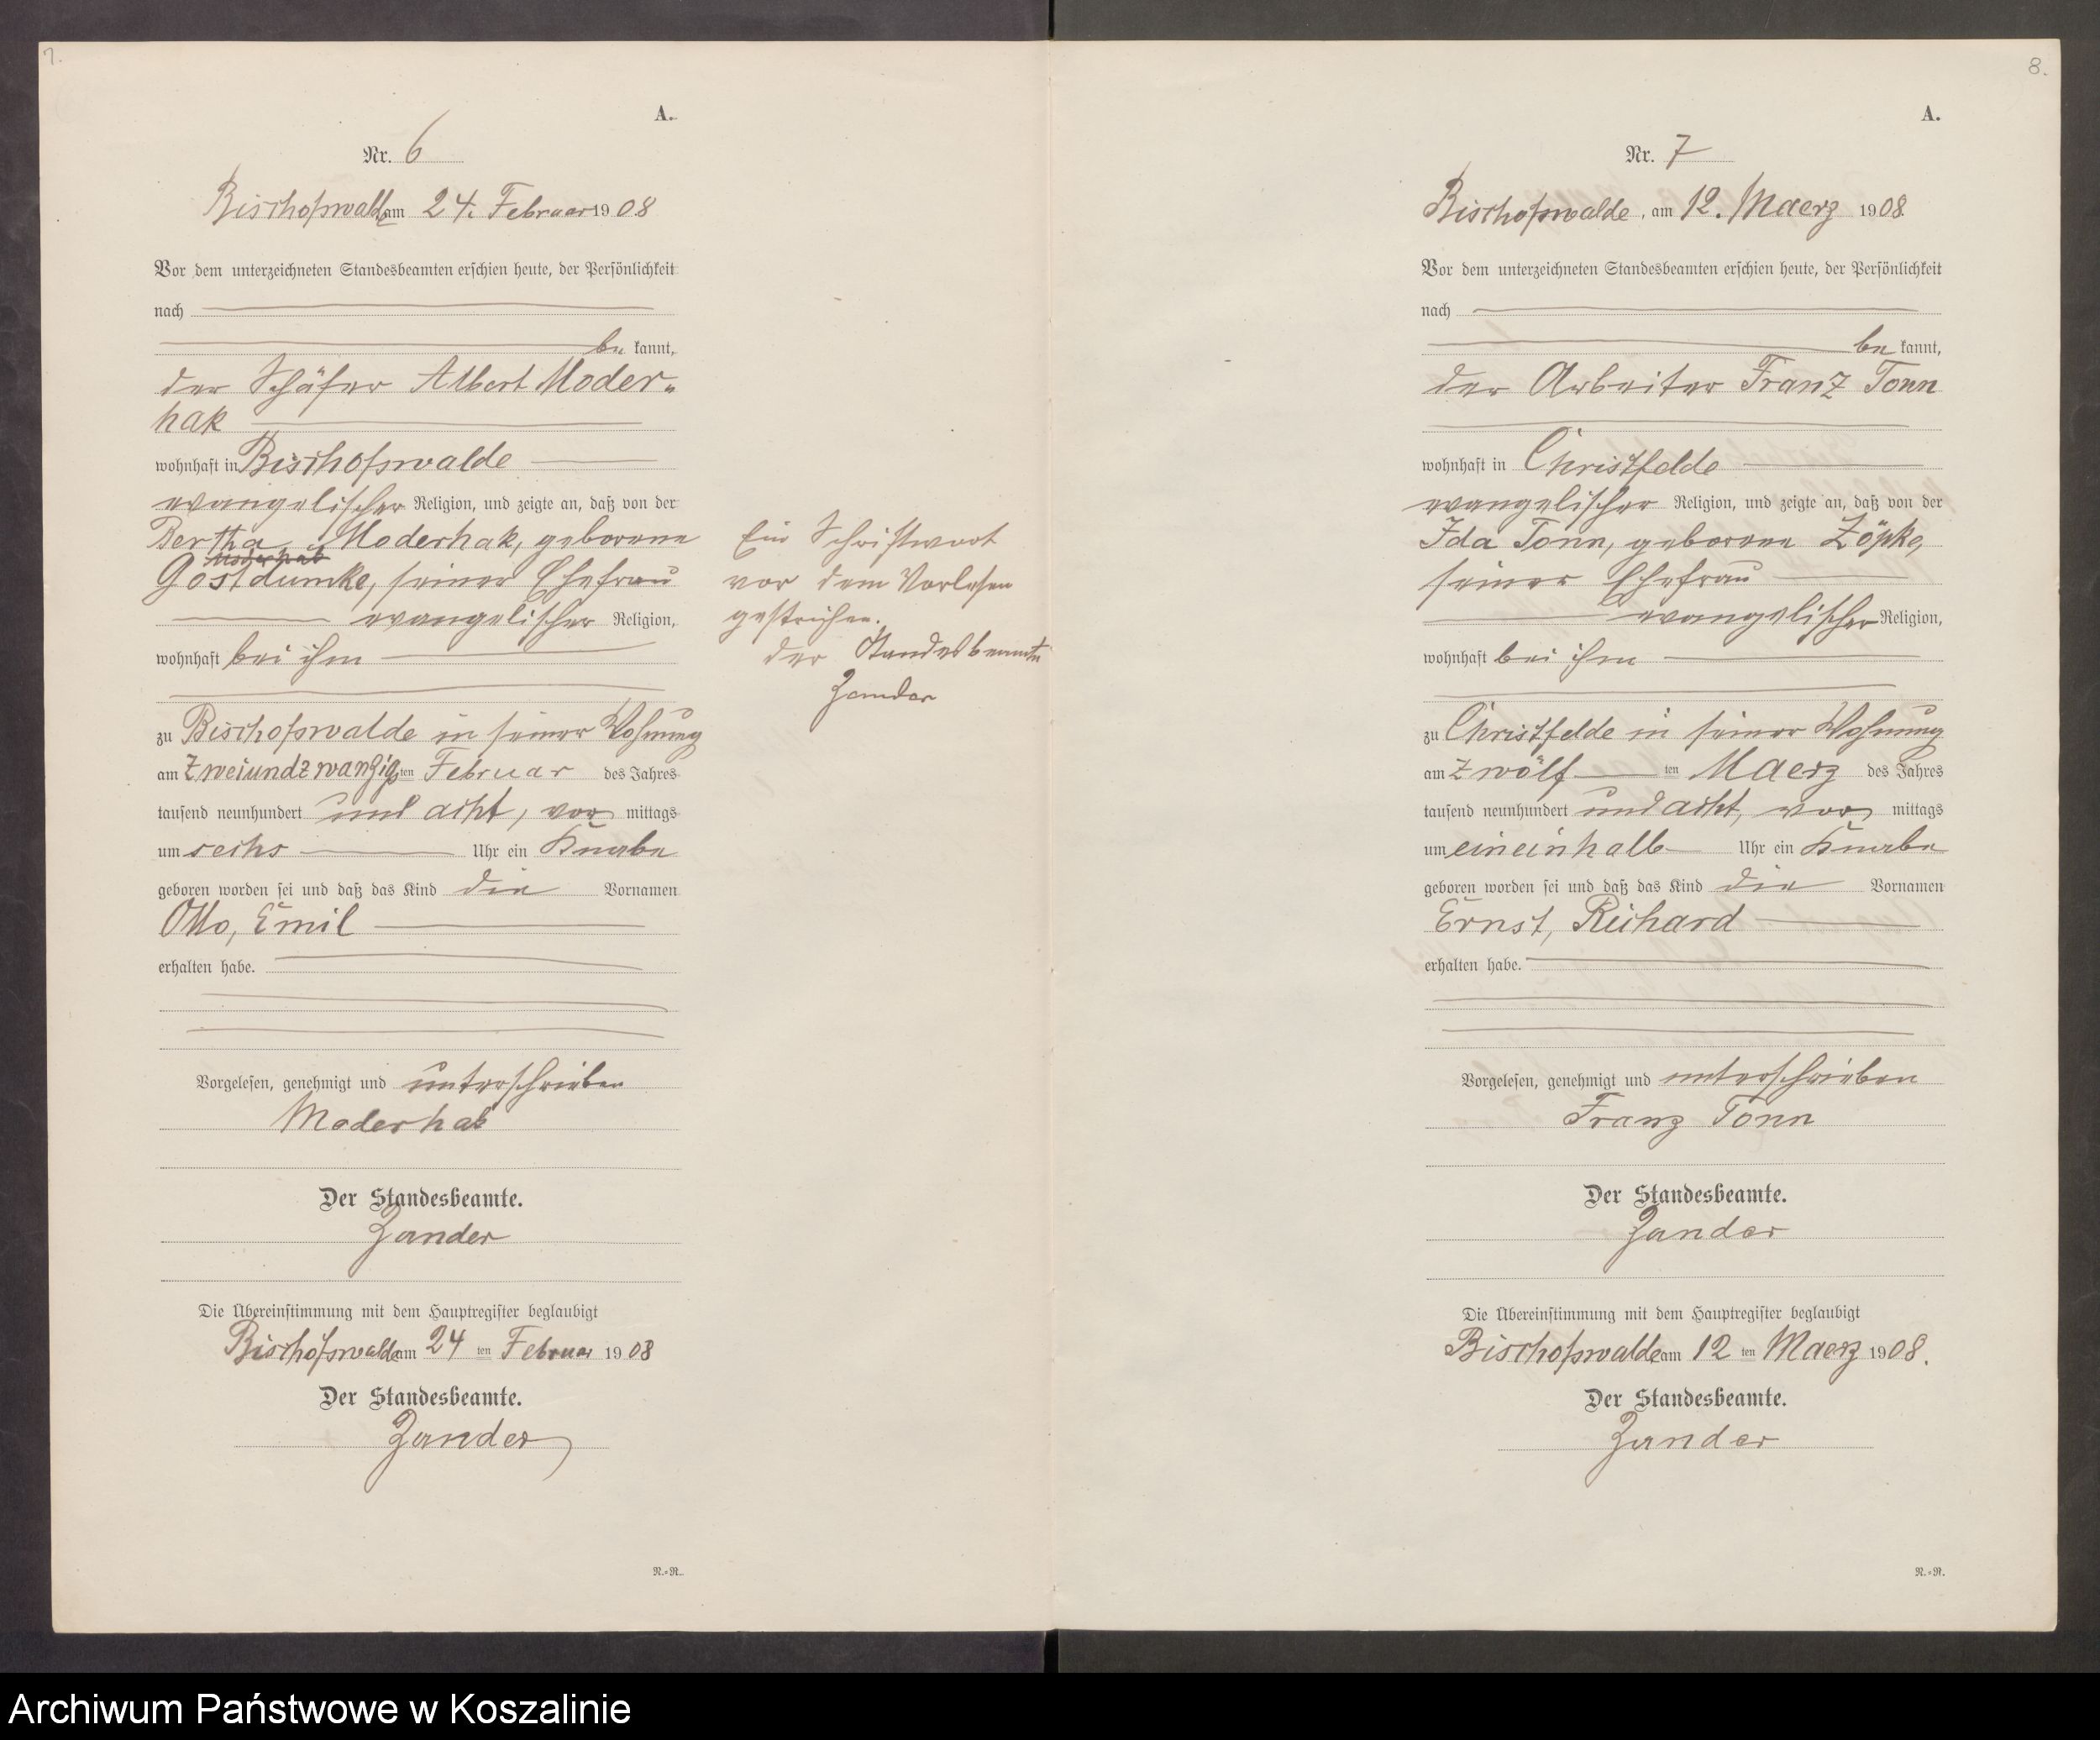 7.
A.
Nr. 6
Bischofswalde am 24. Februar 1908
Vor dem unterzeichneten Standesbeamten erschien heute, der Persönlichkeit
nach
be kannt,
der Schäfer Albert Moder-
hak
wohnhaft in Bischofswalde
evangelischer Religion, und zeigte an, daß von der
Bertha Moderhak, geborene
Gostdumke, seiner Ehefrau
evangelischer Religion,
wohnhaft bei ihm
zu Bischofswalde in seiner Wohnung
am zweiundzwanzigsten Februar des Jahres
tausend neunhundert und acht, vor mittags
um sechs Uhr ein Knabe
geboren worden sei und daß das Kind die Vornamen
Otto, Emil
erhalten habe.
Vorgelesen, genehmigt und unterschrieben
Moderhak
Der Standesbeamte.
Zander
Die Übereinstimmung mit dem Hauptregister beglaubigt
Bischofswalde am 24 ten Februar 1908
Der Standesbeamte.
Zander
N.=R.
Ein Schriftwort
vor dem Vorlesen
gestrichen.
der Standesbeamte
Zander
8.
A.
Nr. 7
Bischofswalde, am 12. Maerz 1908.
Vor dem unterzeichneten Standesbeamten erschien heute, der Persönlichkeit
nach
be kannt,
der Arbeiter Franz Tonn
wohnhaft in Christfelde
evangelischer Religion, und zeigte an, daß von der
Ida Tonn, geborene Zöpke,
seiner Ehefrau
evangelischer Religion,
wohnhaft bei ihm
zu Christfelde in seiner Wohnung
am zwölf ten Maerz des Jahres
tausend neunhundert und acht, vor mittags
um eineinhalb Uhr ein Knabe
geboren worden sei und daß das Kind die Vornamen
Ernst, Richard
erhalten habe.
Vorgelesen, genehmigt und unterschrieben
Franz Tonn
Der Standesbeamte.
Zander
Die Übereinstimmung mit dem Hauptregister beglaubigt
Bischofswalde am 12 ten Maerz 1908.
Der Standesbeamte.
Zander
N.=R.
Archiwum Państwowe w Koszalinie